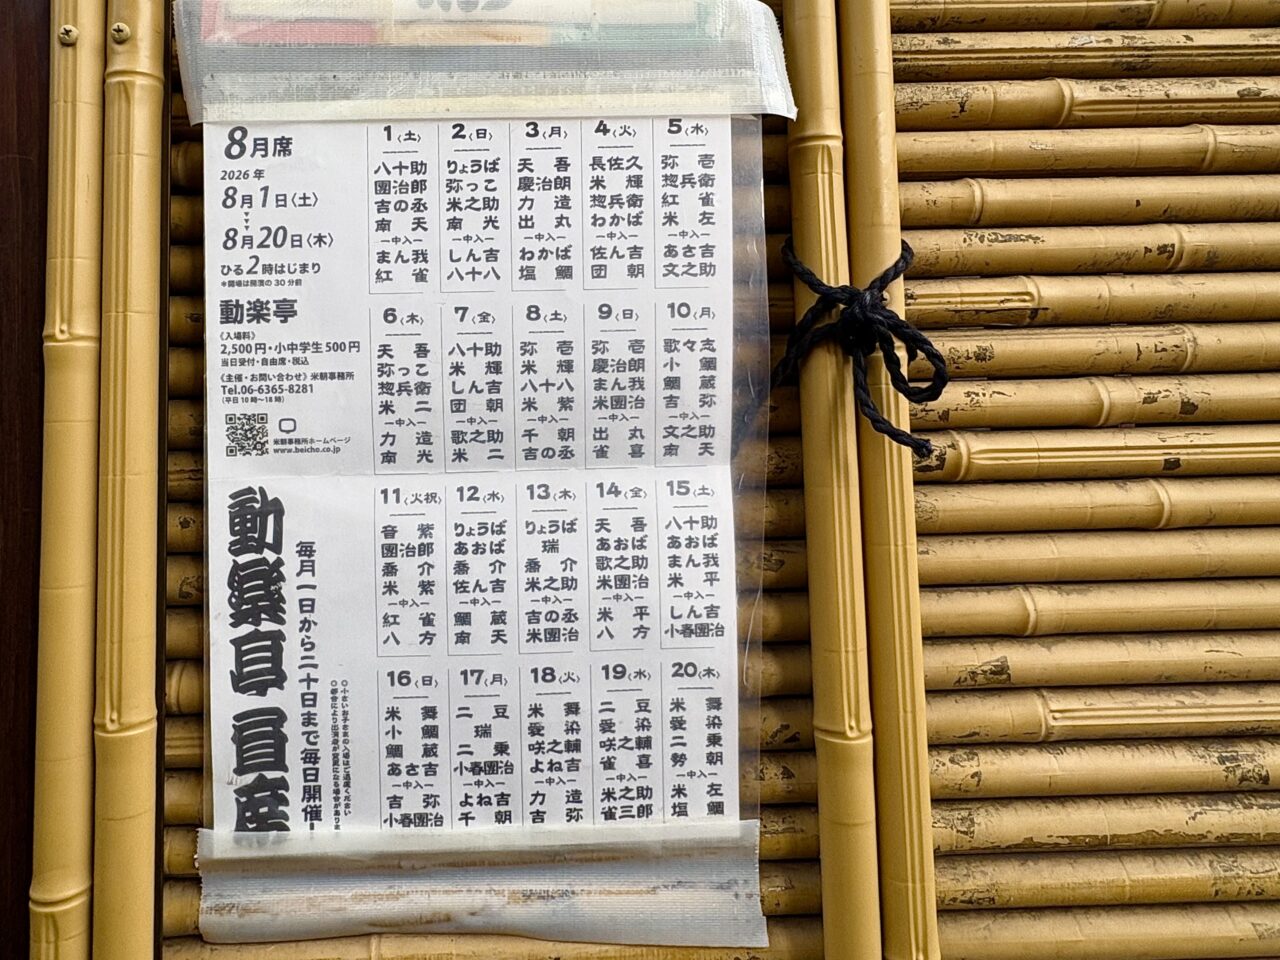 8月席
2026年
8月1日〈土〉
8月20日〈木〉
ひる2時はじまり
*開場は開演の30分前
動楽亭
《入場料》
2,500円・小中学生500円
当日受付・自由席・税込
《主催・お問い合わせ》米朝事務所
Tel.06-6365-8281
(平日10時〜18時)
米朝事務所ホームページ
www.beicho.co.jp
1〈土〉
八十助
團治郎
吉の丞
南天
―中入―
まん我
紅雀
2〈日〉
りょうば
弥っこ
米之助
南光
―中入―
しん吉
八十八
3〈月〉
天吾
慶治朗
力造
出丸
―中入―
わかば
塩鯛
4〈火〉
長佐久
米輝
惣兵衛
わかば
―中入―
佐ん吉
団朝
5〈水〉
弥壱
惣兵衛
紅雀
米左
―中入―
あさ吉
文之助
6〈木〉
天吾
弥っこ
惣兵衛
米二
―中入―
力造
南光
7〈金〉
八十助
米輝
しん吉
団朝
―中入―
歌之助
米二
8〈土〉
弥壱
米輝
八十八
米紫
―中入―
千朝
吉の丞
9〈日〉
弥壱
慶治朗
まん我
米團治
―中入―
出丸
雀喜
10〈月〉
歌々志
小鯛
鯛蔵
吉弥
―中入―
文之助
南天
11〈火祝〉
音紫
團治郎
呑介
米紫
―中入―
紅雀
八方
12〈水〉
りょうば
あおば
呑介
佐ん吉
―中入―
鯛蔵
南天
13〈木〉
りょうば
瑞
呑介
米之助
―中入―
吉の丞
米團治
14〈金〉
天吾
あおば
歌之助
米團治
―中入―
米平
八方
15〈土〉
八十助
あおば
まん我
米平
―中入―
しん吉
小春團治
16〈日〉
米舞
小鯛
鯛蔵
あさ吉
―中入―
吉弥
小春團治
17〈月〉
二豆
瑞
二乗
小春團治
―中入―
よね吉
千朝
18〈火〉
米舞
愛染
咲之輔
よね吉
―中入―
力造
吉弥
19〈水〉
二豆
愛染
咲之輔
雀喜
―中入―
米之助
雀三郎
20〈木〉
米舞
愛染
二乗
勢朝
―中入―
米左
塩鯛
動樂亭昼席
毎月一日から二十日まで毎日開催!
○小さいお子さまの入場はご遠慮ください
○都合により出演者が変更になる場合があります